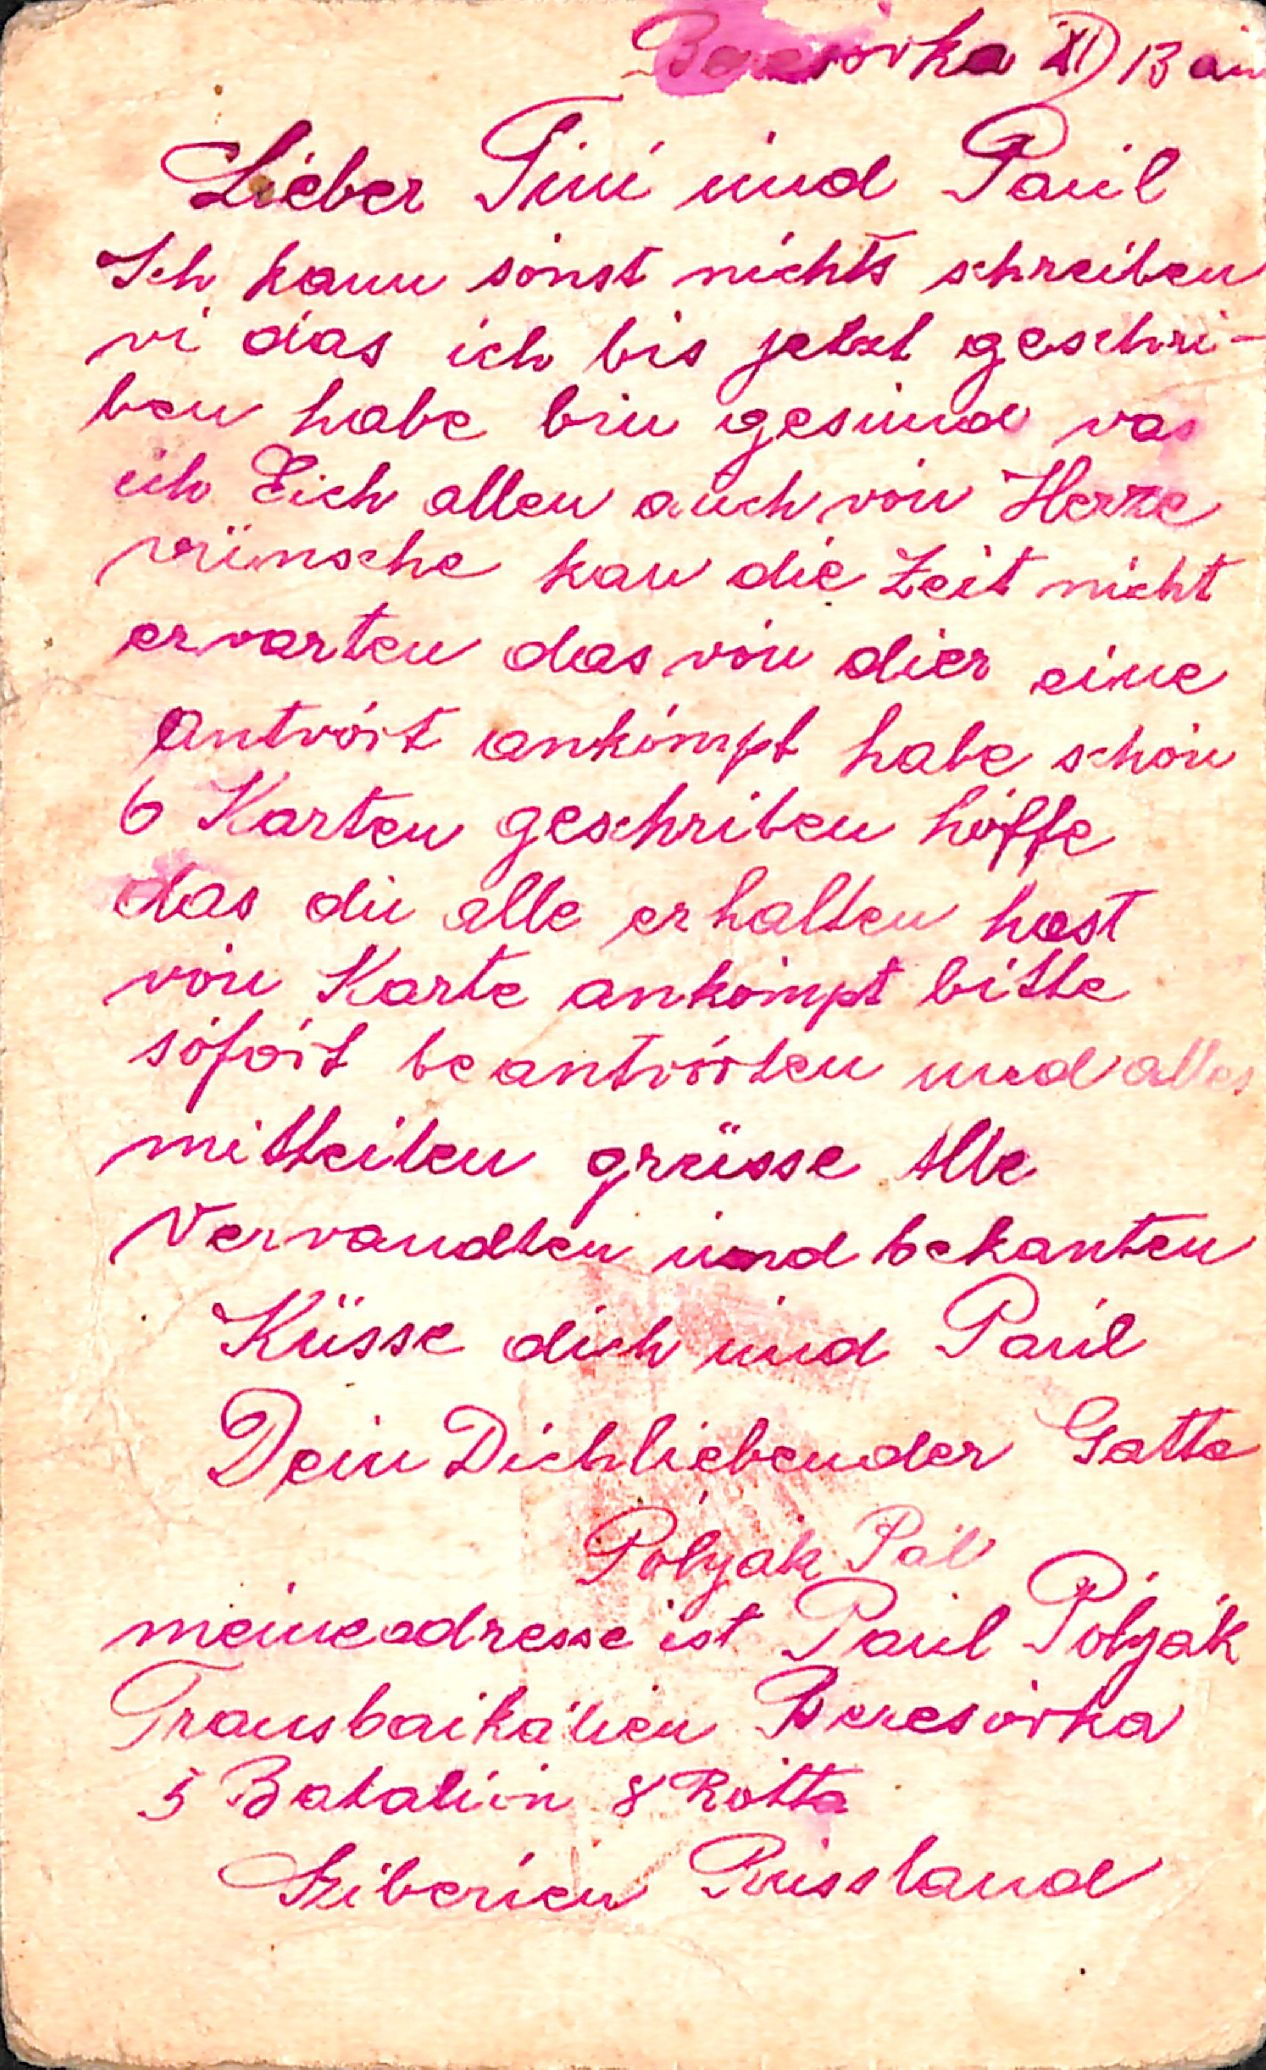 Beresovka XI) 13 an
Lieber Tini und Paul
Ich kann sonst nichts schreiben
vi das ich bis jetzt geschri-
ben habe bin gesund vas
ich Eich allen auch von Herze
vünsche kan die Zeit nicht
ervarten das von dier eine
Antvort ankompt habe schon
6 Karten geschriben hoffe
das du alle erhalten hast
von Karte ankompt bitte
sofort beantvorten und alles
mitteilen grüsse Alle
Vervandten und bekanten
Küsse dich und Paul
Dein Dichliebender Gatte
Polyák Pál
meine adresse ist Paul Polyák
Transbaikálien Beresovka
5 Batalion 8 Rotta
Sziberien Russland